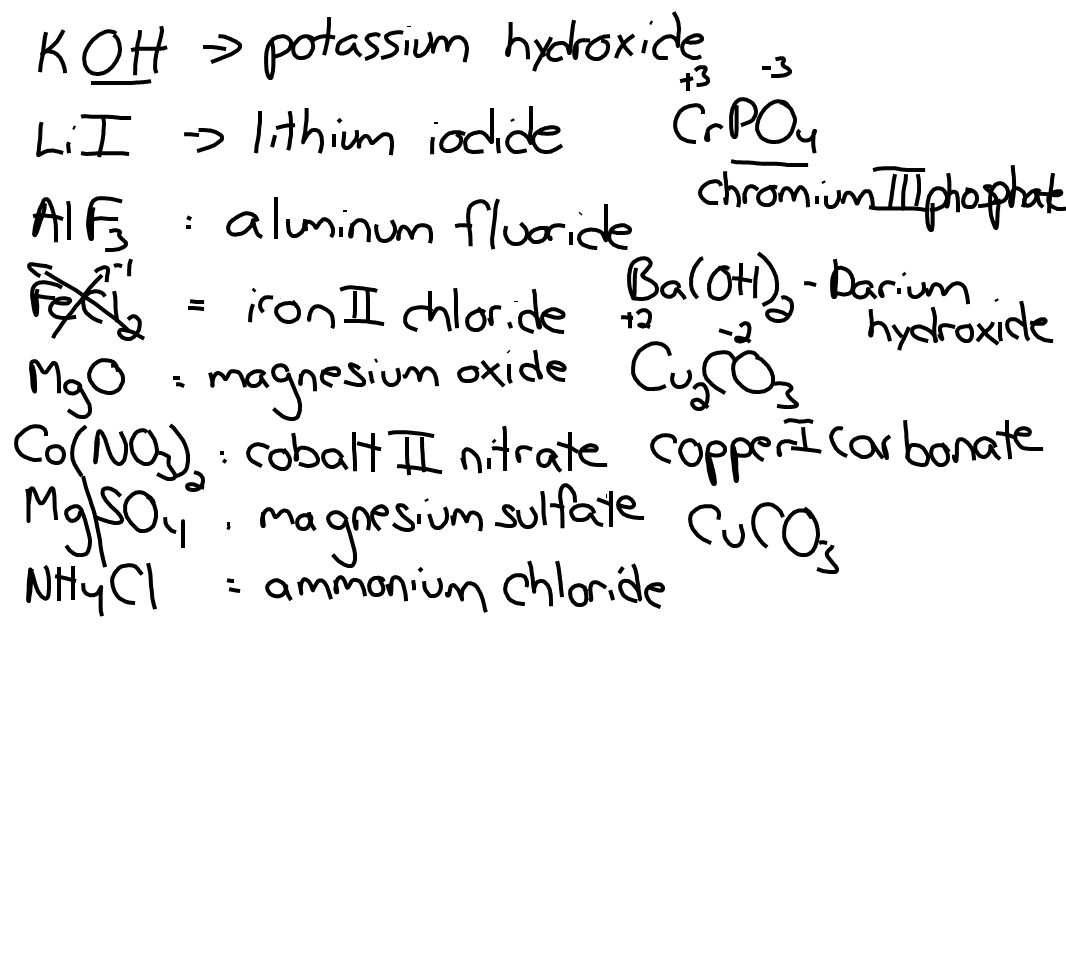 KOH → potassium hydroxide
LiI → lithium iodide
AlF₃ : aluminum fluoride
-1
FeCl₂ = iron II chloride
MgO = magnesium oxide
Co(NO₃)₂ : cobalt II nitrate
MgSO₄ : magnesium sulfate
NH₄Cl = ammonium chloride
+3 -3
CrPO₄
chromium III phosphate
Ba(OH)₂ - barium
hydroxide
+2 -2
Cu₂CO₃
copper I carbonate
CuCO₃